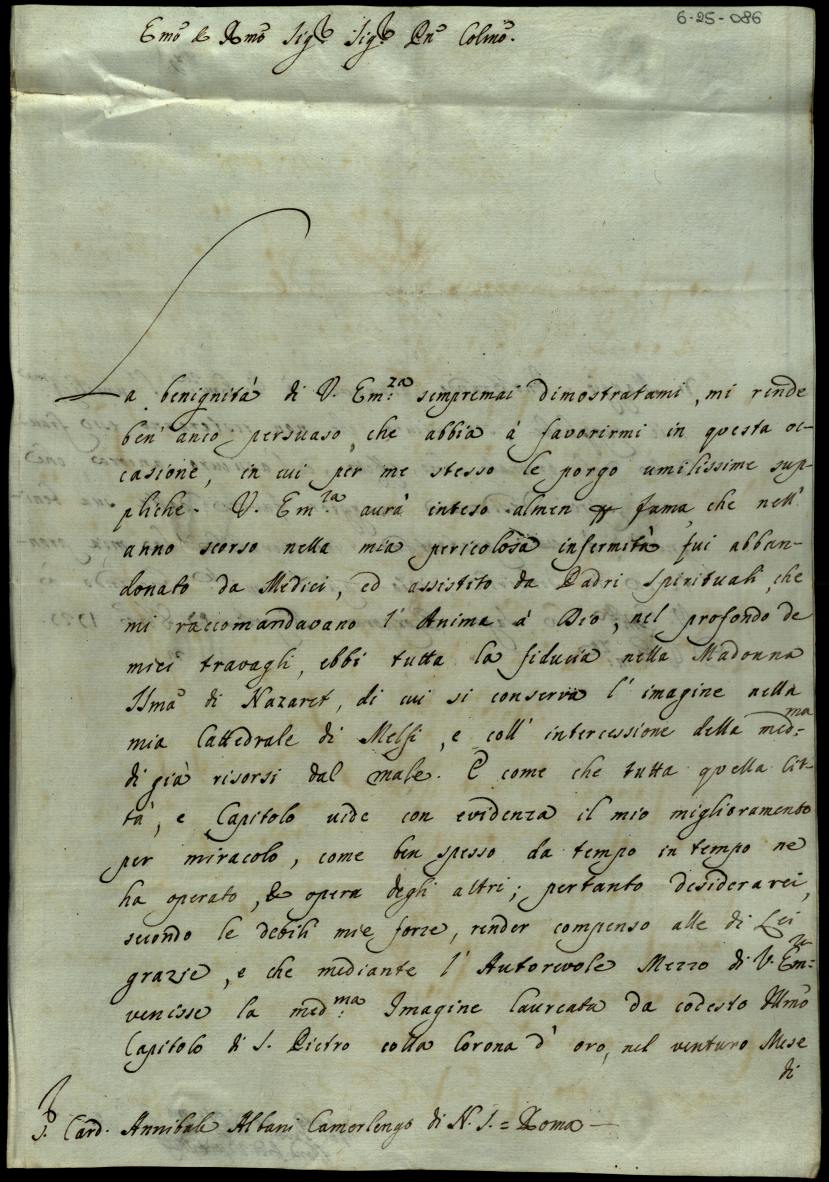 6-25-086
Emo & Rmo Sigr Sigr Pne Colmo.
La benignità di V. Em:za sempremai dimostratami, mi rende
ben' anco persuaso, che abbia à favorirmi in questa oc-
casione, in cui per me stesso le porgo umilissime sup-
pliche. V. Em:za aurà inteso almen per fama, che nell'
anno scorso nella mia pericolosa infermità fui abban-
donato da Medici, ed assistito da Padri Spirituali, che
mi raccomandavano l' Anima à Dio, nel profondo de
miei travagli, ebbi tutta la fiducia nella Madonna
SSma di Nazaret, di cui si conserva l' imagine nella
mia Cattedrale di Melfi, e coll' intercessione della med:ma
di già risorsi dal male. E come che tutta quella Cit-
tà, e Capitolo vide con evidenza il mio miglioramento
per miracolo, come ben spesso da tempo in tempo ne
ha operato, & opera degli altri; pertanto desiderarei,
secondo le debili mie forze, render compenso alle di Lei
grazie, e che mediante l' Autorevole Mezzo di V. Em:za
venisse la med:ma Imagine laureata da codesto Illmo
Capitolo di S. Pietro colla Corona d' oro, nel venturo Mese
di
S. Card. Annibale Albani Camerlengo di N. S. = Roma —